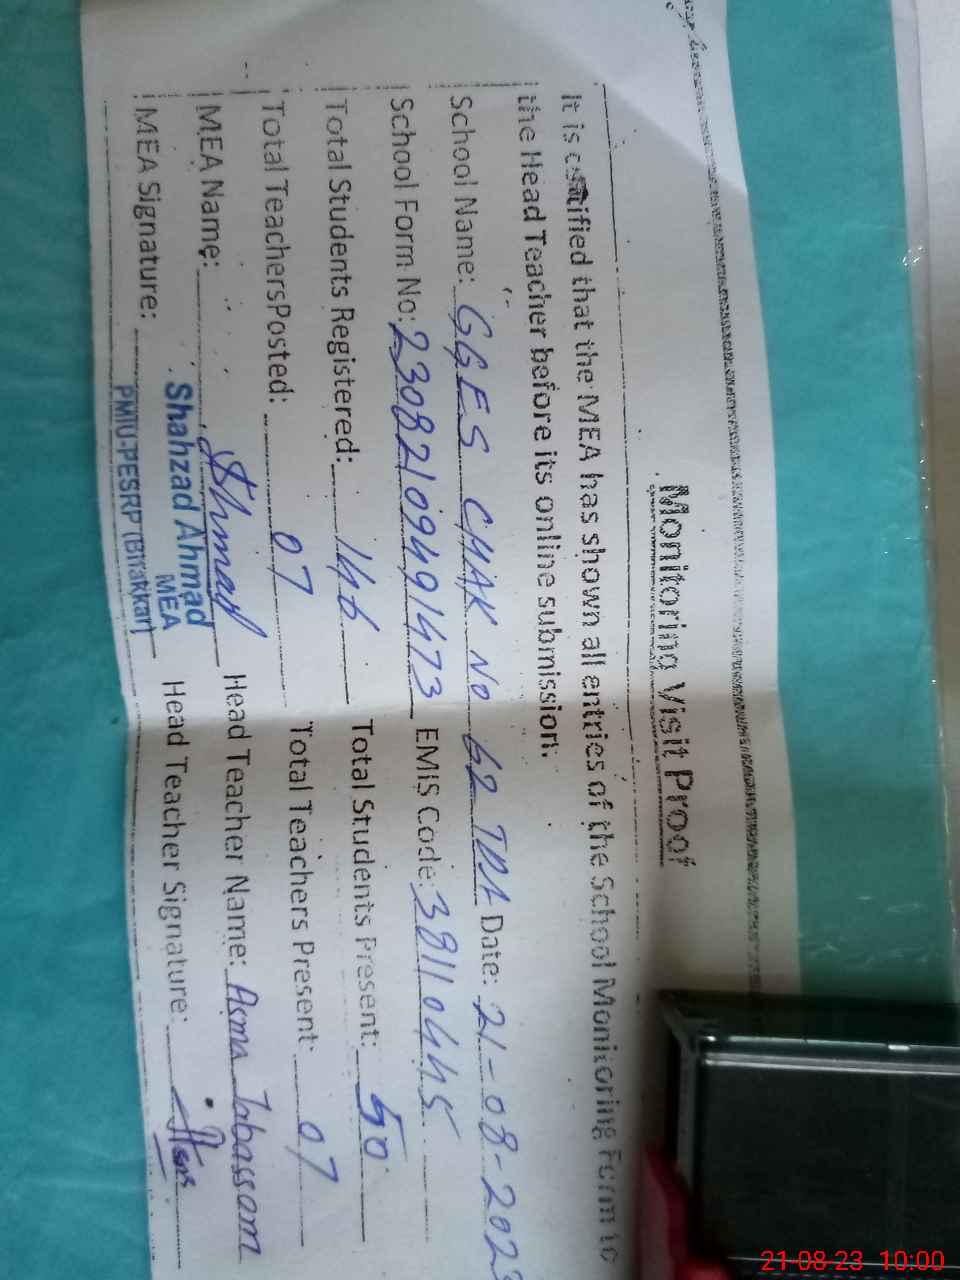 Monitoring Visit Proof
It is certified that the MEA has shown all entries of the School Monitoring Form to
the Head Teacher before its online submission.
School Name: GGES CHAK NO 62 TDA Date: 21-08-2023
School Form No: 23082109491473 EMIS Code: 38110445
Total Students Registered: 146 Total Students Present: 50
Total TeachersPosted: 07 Total Teachers Present: 07
MEA Name: Ahmad Head Teacher Name: Asma Tabassom
MEA Signature: Shahzad Ahmad Head Teacher Signature:
MEA
PMIU-PESRP (Bhakkar)
21-08-23 10:00